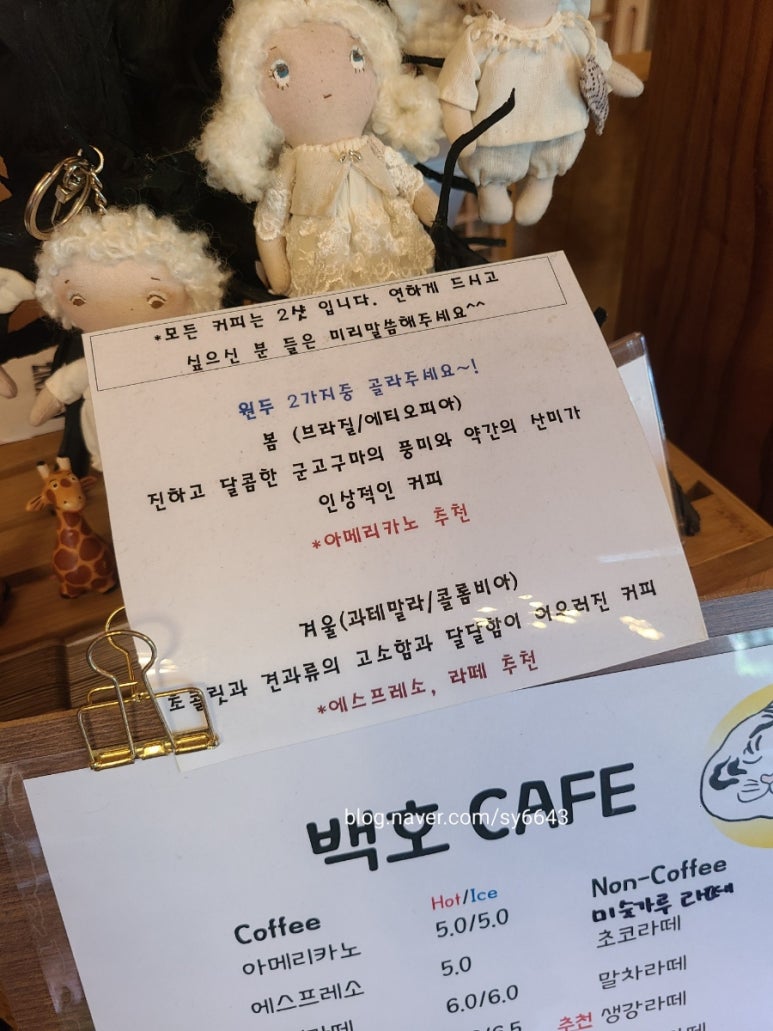 *모든 커피는 2샷 입니다. 연하게 드시고
싶으신 분 들은 미리말씀해주세요^^
원두 2가지중 골라주세요~!
봄 (브라질/에티오피아)
진하고 달콤한 군고구마의 풍미와 약간의 산미가
인상적인 커피
*아메리카노 추천
겨울(과테말라/콜롬비아)
초콜릿과 견과류의 고소함과 달달함이 어우러진 커피
*에스프레소, 라떼 추천
백호 CAFE
blog.naver.com/sy6643
Coffee
Hot/Ice
아메리카노 5.0/5.0
에스프레소 5.0
라떼 6.0/6.0
Non-Coffee
미숫가루 라떼
초코라떼
말차라떼
추천 생강라떼